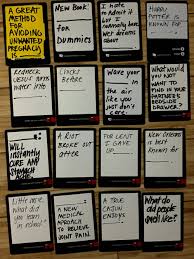 A GREAT
METHOD FOR
AVIODING
UNWANTED
PREGNACIA is
New Book
for
Dummies
I hate
to Admit
it But I
normally have
wet dreams
about
HAPPY
POTTER IS
KNOWN FOR
REDNECK
JESUS
WATER INTO
CLOCKS
BEFORE
Wave your
in the air
like you
just don't
care
What would
you NOT
want to
find in your
PARTNER'S
BEDSIDE
DRAWER
Will
instantly
cure any
stomach
A RIOT
BROKE OUT
AFTER
FOR LENT
I GAVE
UP
NEW ORLEANS IS
best
known for
Little more,
what did
you learn
in
A NEW
MEDICAL
APPROACH
TO RELIEVE
JOINT PAIN.
A TRUE
CAJUN
ENJOYS
What do
old people
smell like?